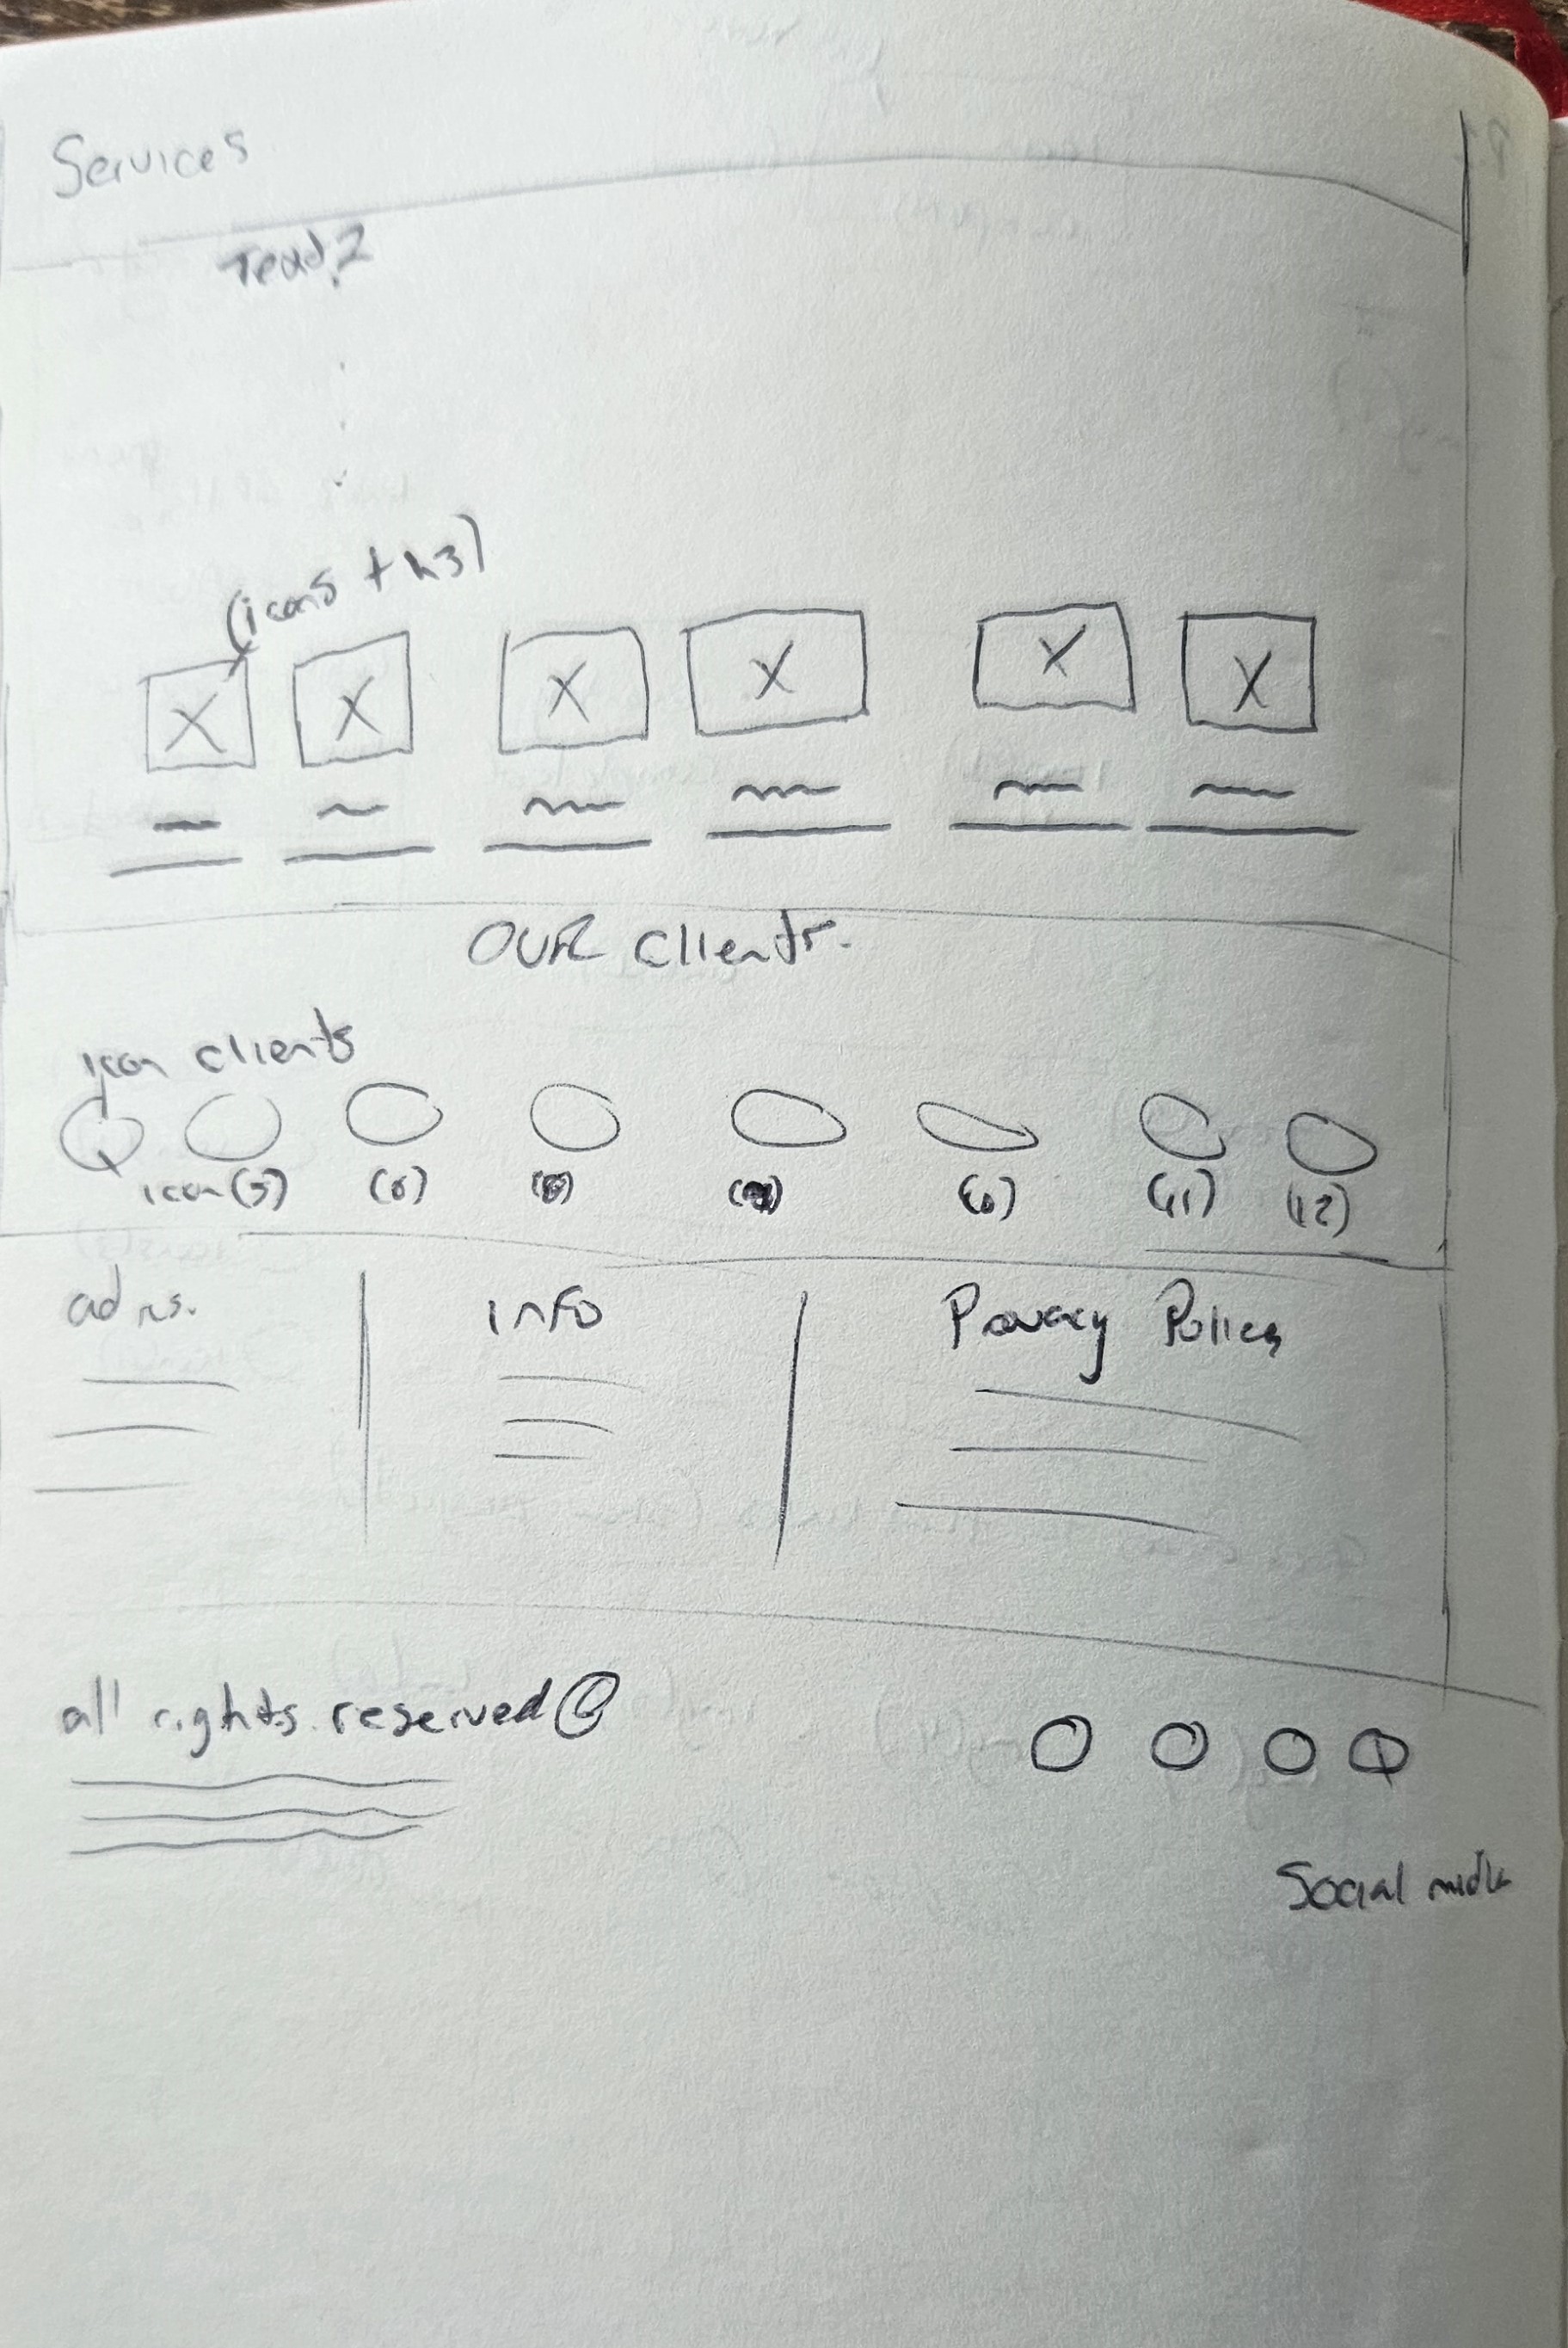 Services
(icons + h3)
OUR clients.
icon clients
icon (5)
(10)
(11)
(12)
info
Privacy Policy
all rights reserved ©
Social